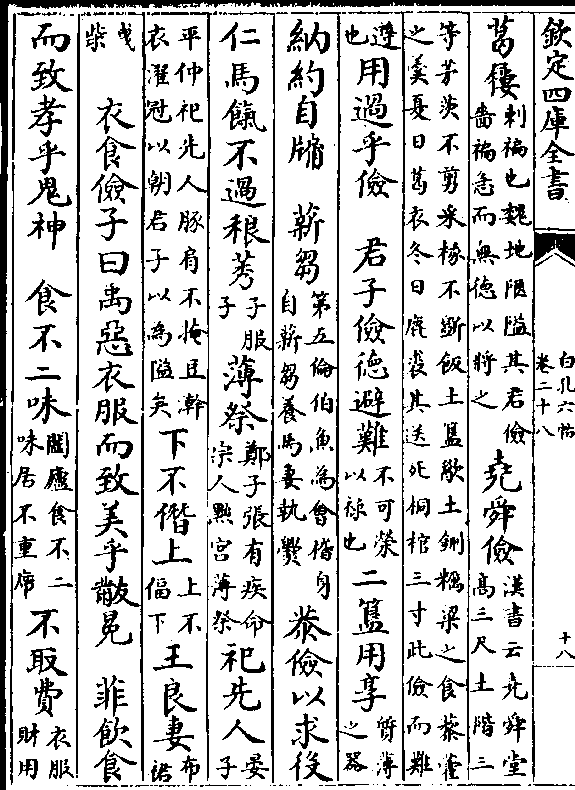 欽定四庫全書
白孔六帖
卷二十八
十八
葛屨刺褊也魏地陿隘其君儉嗇褊急而無德以將之 堯舜儉漢書云堯舜堂高三尺土階三
等茅茨不剪采椽不斲飯土簋歠土鉶糲粱之食藜藿之羮夏日葛衣冬日鹿裘其送死桐棺三寸此儉而難
遵也用過乎儉 君子儉德避難不可榮以祿也二簋用享質薄之器
納約自牖 薪芻第五倫伯魚為會稽身自薪芻養馬妻執爨 恭儉以求役
仁馬餼不過稂莠子服子薄祭鄭子張有疾命宗人黜宮薄祭祀先人晏子
平仲祀先人豚肩不掩豆澣衣濯冠以朝君子以為隘矣下不僭上上不偪下王良妻布裙
曳柴 衣食儉子曰禹惡衣服而致美乎黻冕 菲飲食
而致孝乎鬼神 食不二味闔廬食不二味居不重席不取費衣服財用